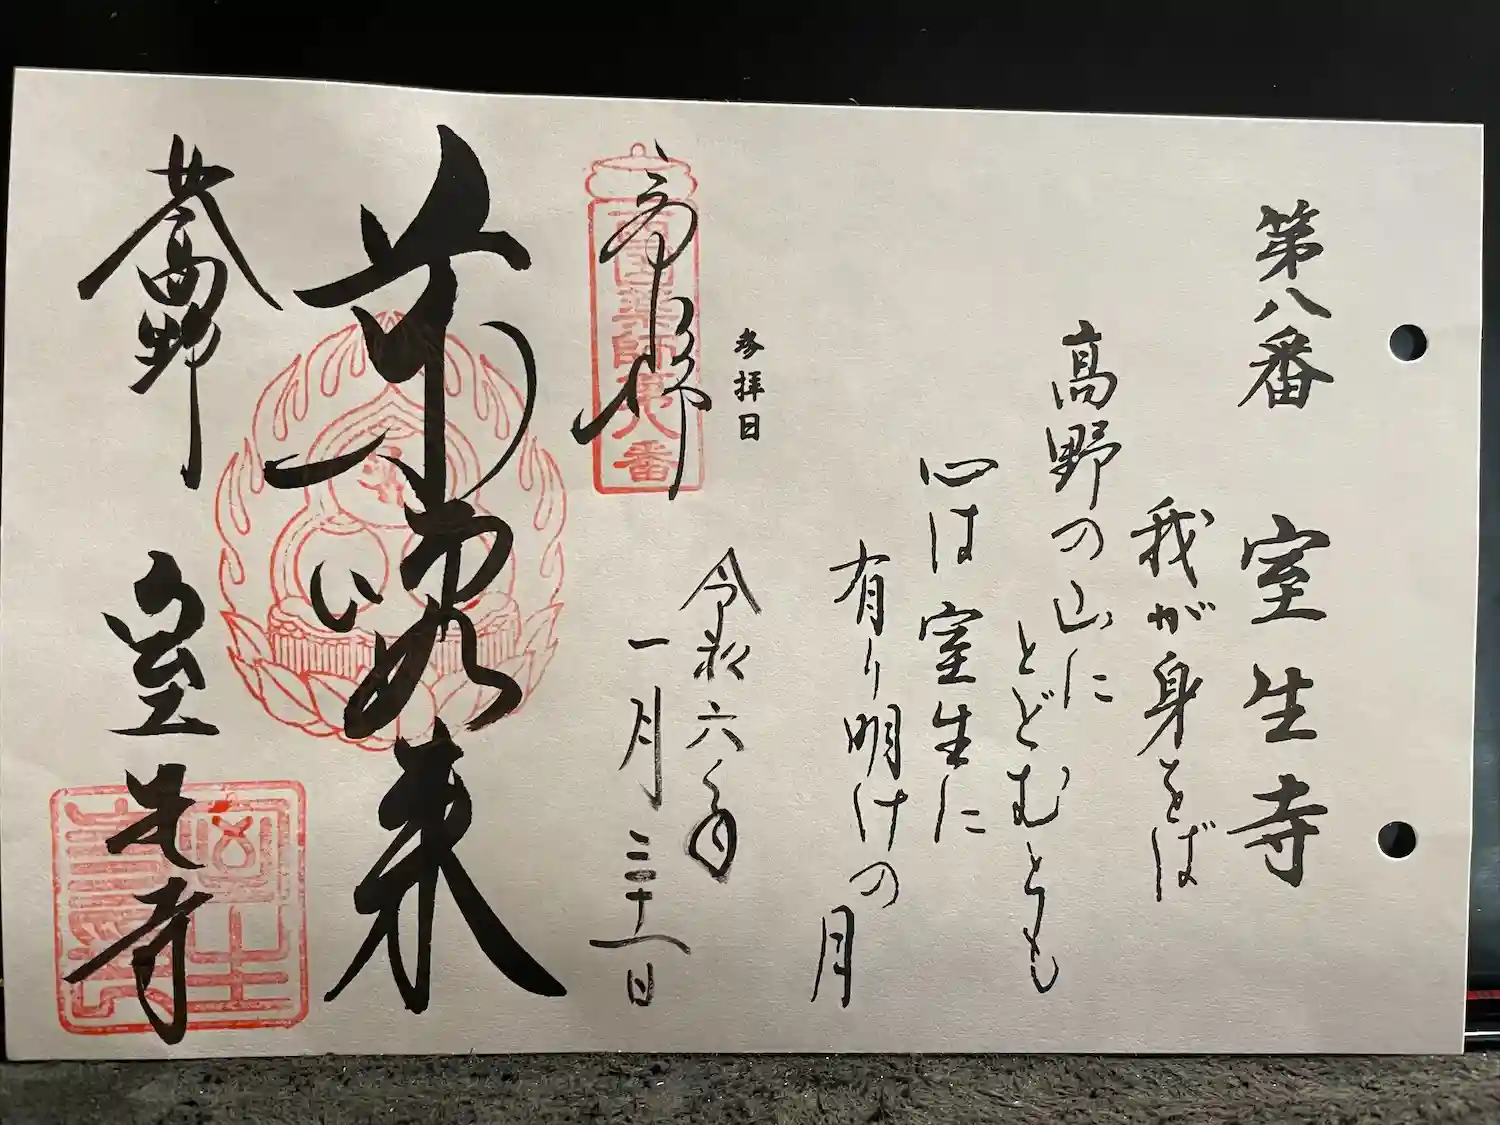 第八番 室生寺
我が身をば
高野の山に
とどむとも
心は室生に
有り明けの月
参拝日
令和六年
一月三十一日
奉拝
西国薬師第八番
薬師如来
女高野
室生寺